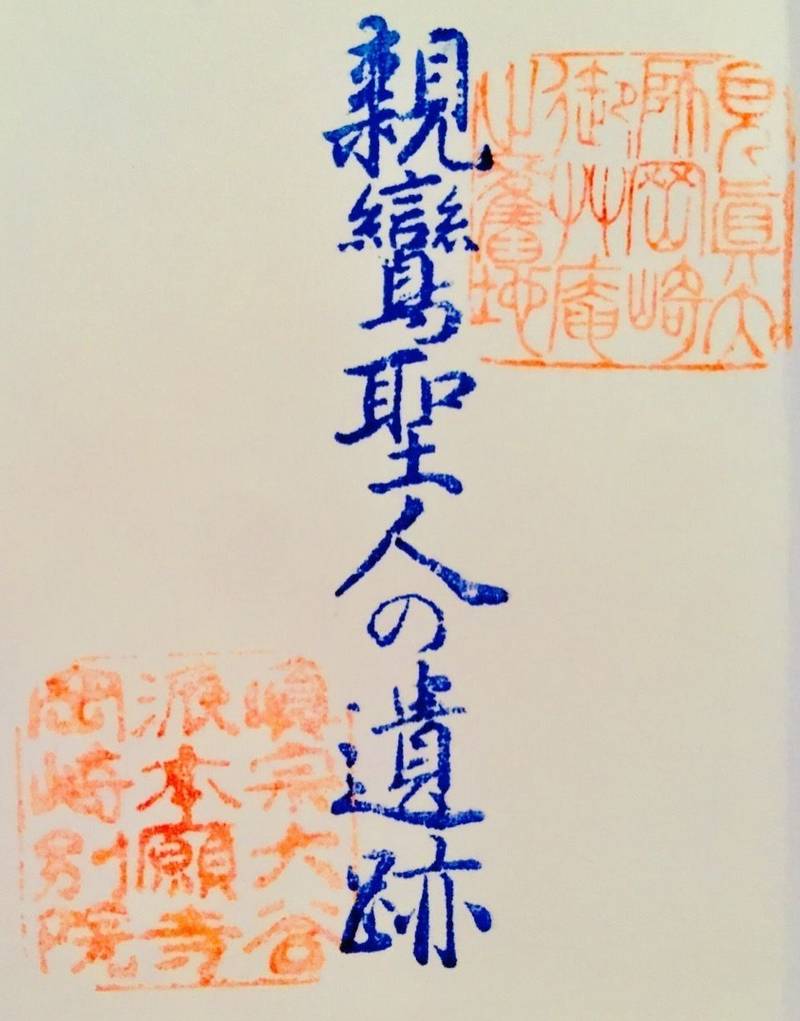 見眞大
師岡崎
御艸庵
之舊地
親鸞聖人の遺跡
眞宗大谷
派本願寺
岡崎別院